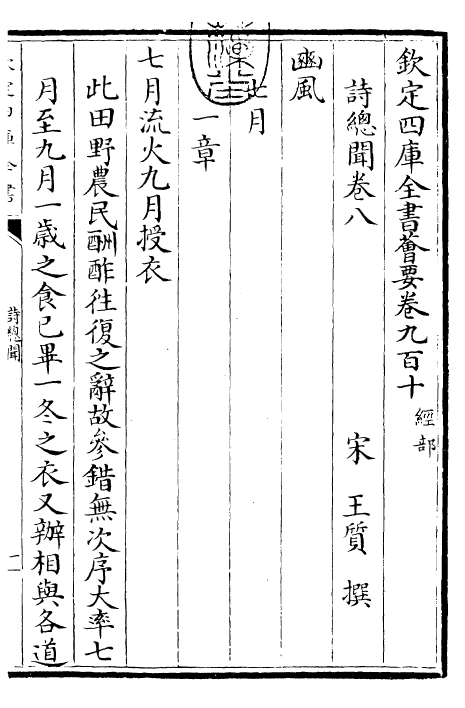 欽定四庫全書薈要卷九百十 經部
詩總聞卷八 宋 王質 撰
豳風
七月
一章
七月流火九月授衣
此田野農民酬酢往復之辭故參錯無次序大率七
月至九月一歳之食已畢一冬之衣又辦相與各道
詩總聞